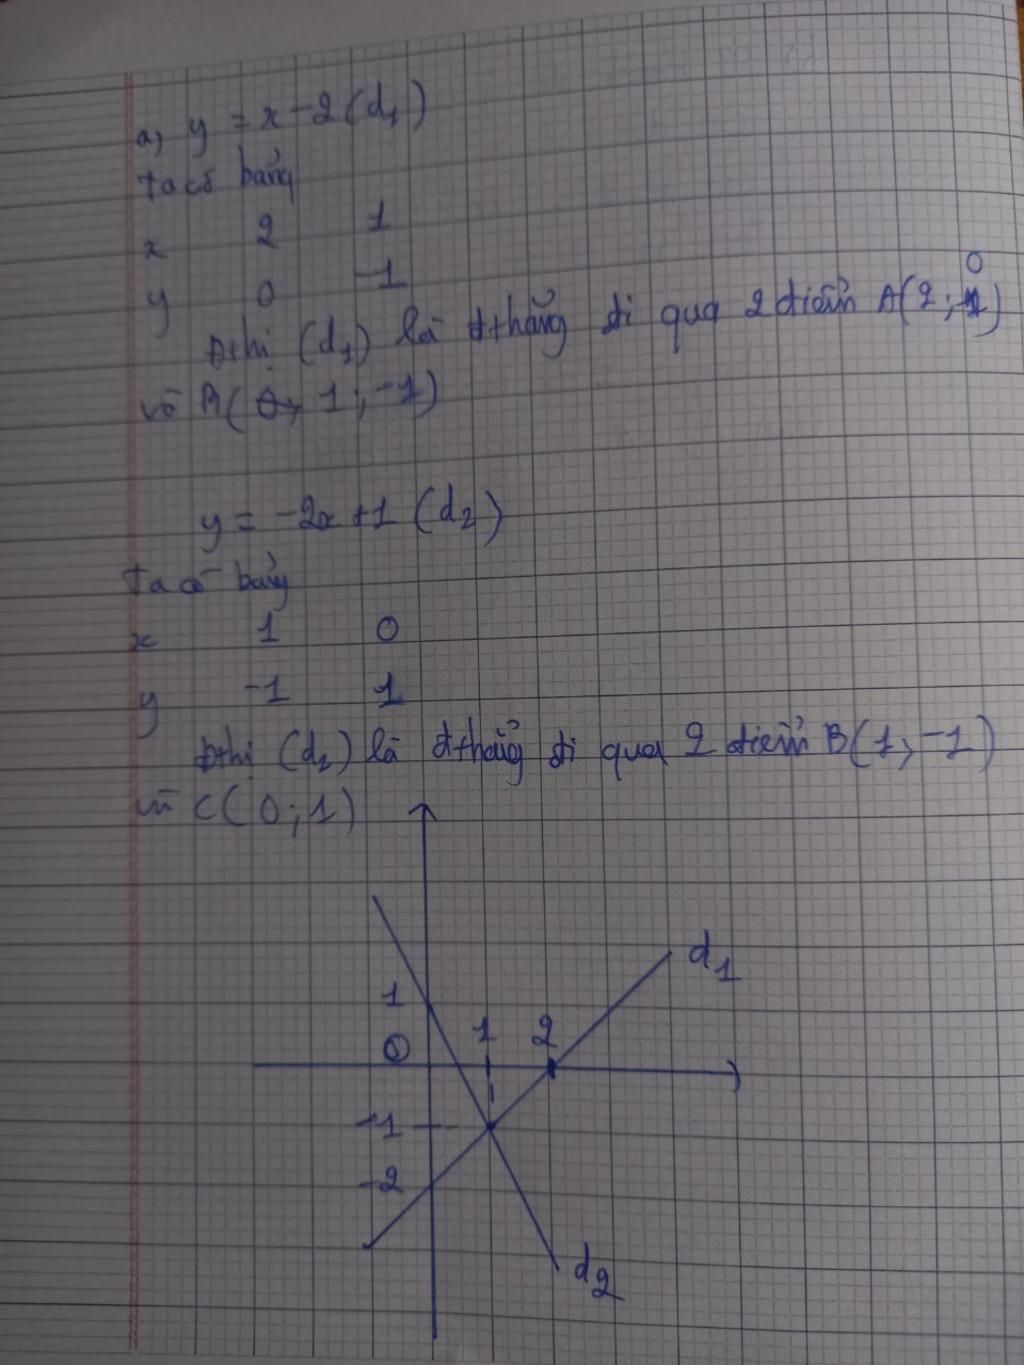 a, y = x - 2 (d1)
ta có bảng
x 2 1
y 0 -1
Đthị (d1) là đthẳng đi qua 2 điểm A(2; 0)
và B( 1; -1)
y = -2x + 1 (d2)
Ta có bảng
x 1 0
y -1 1
Đthị (d2) là đthẳng đi qua 2 điểm B(1; -1)
và C(0; 1)
d1
1
1 2
0
-1
-2
d2